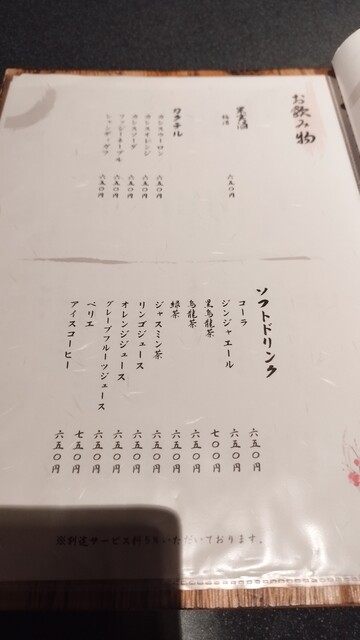 お飲み物
果実酒
梅酒 六五〇円
カクテル
カシスウーロン 六五〇円
カシスオレンジ 六五〇円
カシスソーダ 六五〇円
ファジーネーブル 六五〇円
シャンディ・ガフ 六五〇円
ソフトドリンク
コーラ 六五〇円
ジンジャエール 六五〇円
黒烏龍茶 七〇〇円
烏龍茶 六五〇円
緑茶 六五〇円
ジャスミン茶 六五〇円
リンゴジュース 六五〇円
オレンジジュース 六五〇円
グレープフルーツジュース 六五〇円
ペリエ 七五〇円
アイスコーヒー 六五〇円
※別途サービス料5%いただいております。